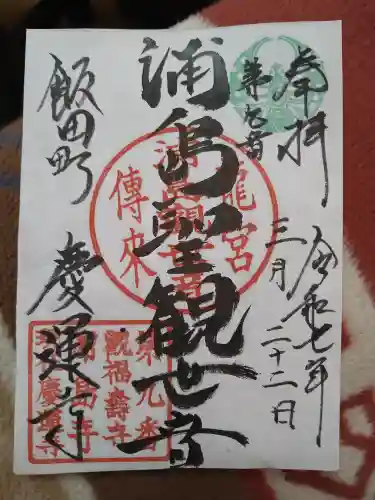 奉拝
令和七年
三月二十二日
第九番
浦島聖観世音
龍宮
傳来
浦島観世音
飯田町
慶運寺
第九番
観福壽寺
浦島寺
慶運寺